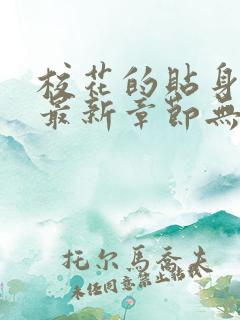 校花的貼身
最新章節無
托尔馬喬夫
未任同意禁止转载